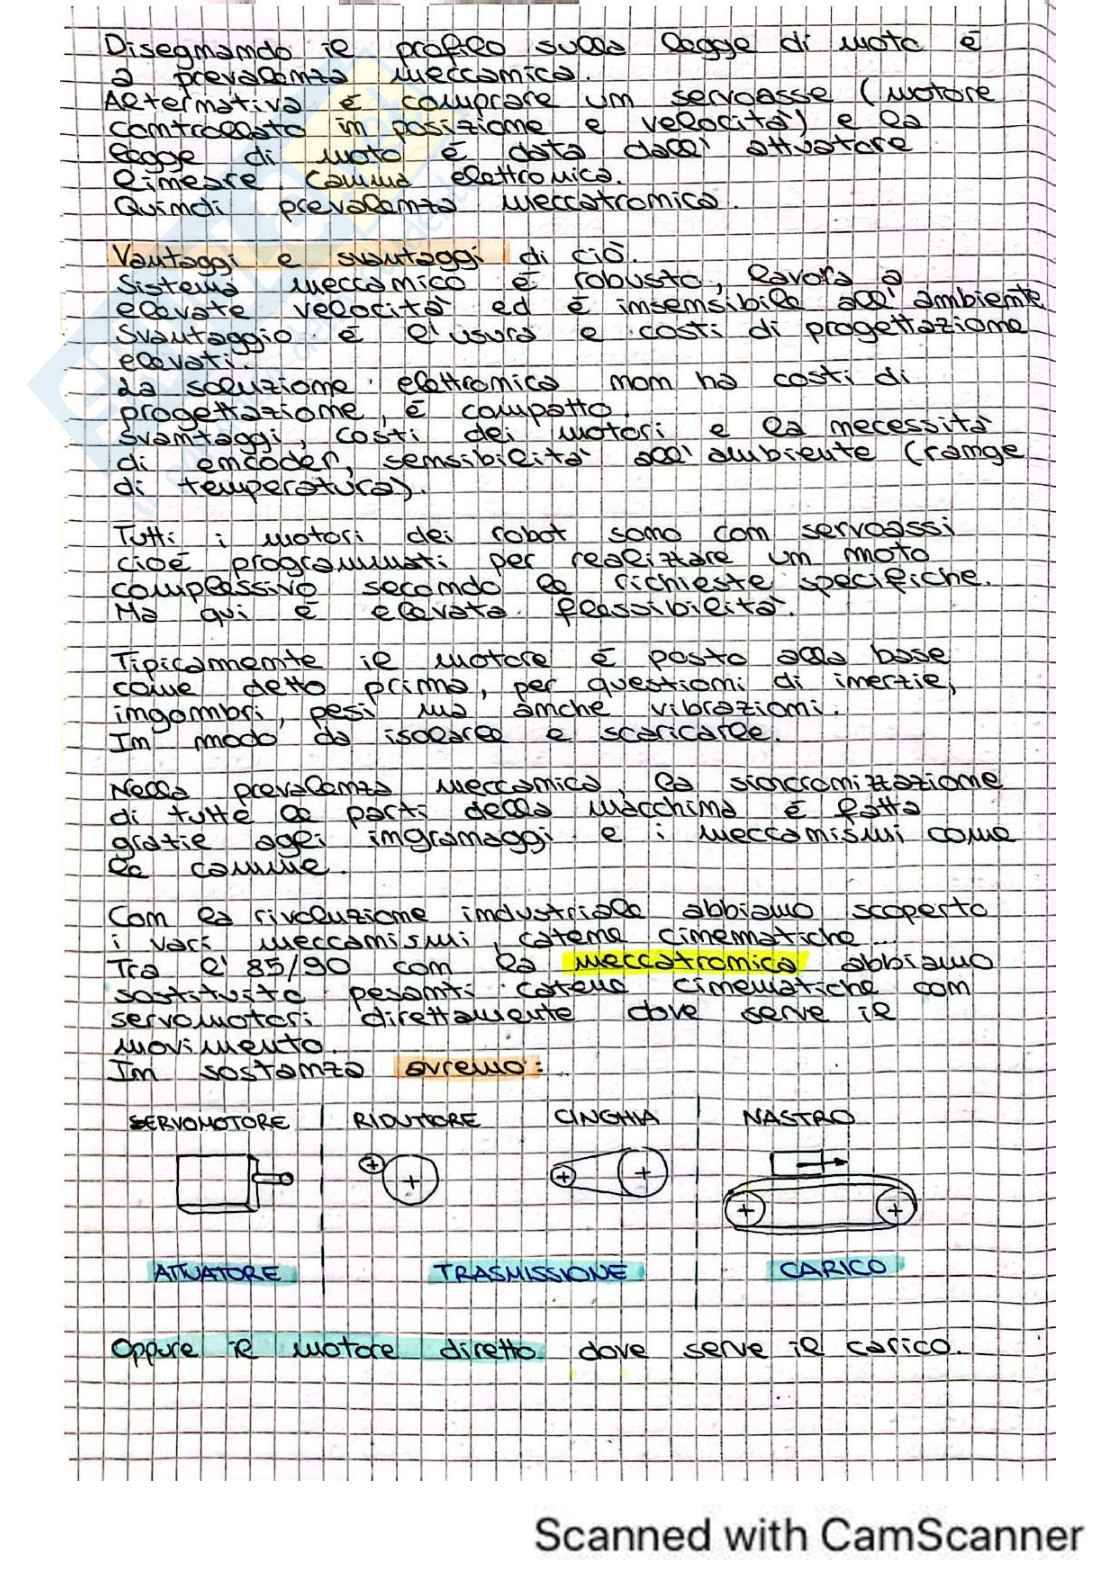 Disegnando il profilo sulla legge di moto è
a prevalenza meccanica.
Alternativa è comprare un servoasse (motore
controllato in posizione e velocità) e la
legge di moto è data dall' attuatore
lineare camma elettronica.
Quindi prevalenza meccatronica.
Vantaggi e svantaggi di ciò.
Sistema meccanico è robusto, lavora a
elevate velocità ed è insensibile all' ambiente.
Svantaggio è l'usura e costi di progettazione
elevati.
La soluzione elettronica non ha costi di
progettazione, è compatto.
Svantaggi, costi dei motori e la necessità
di encoder, sensibilità all' ambiente (range
di temperatura).
Tutti i motori dei robot sono con servoassi
cioè programmati per realizzare un moto
complessivo secondo le richieste specifiche.
Ma qui è elevata flessibilità.
Tipicamente il motore è posto alla base
come detto prima, per questioni di inerzie,
ingombri, pesi ma anche vibrazioni.
In modo da isolarle e scaricarle.
Nella prevalenza meccanica, la sioncronizzazione
di tutte le parti della macchina è fatta
grazie agli ingranaggi e i meccanismi come
le camme.
Con la rivoluzione industriale abbiamo scoperto
i vari meccanismi, catene cinematiche...
Tra l' 85/90 con la meccatronica abbiamo
sostituito pesanti catene cinematiche con
servomotori direttamente dove serve il
movimento.
In sostanza avremo:
SERVOMOTORE RIDUTTORE CINGHIA NASTRO
ATTUATORE TRASMISSIONE CARICO
Oppure il motore diretto dove serve il carico.
Scanned with CamScanner